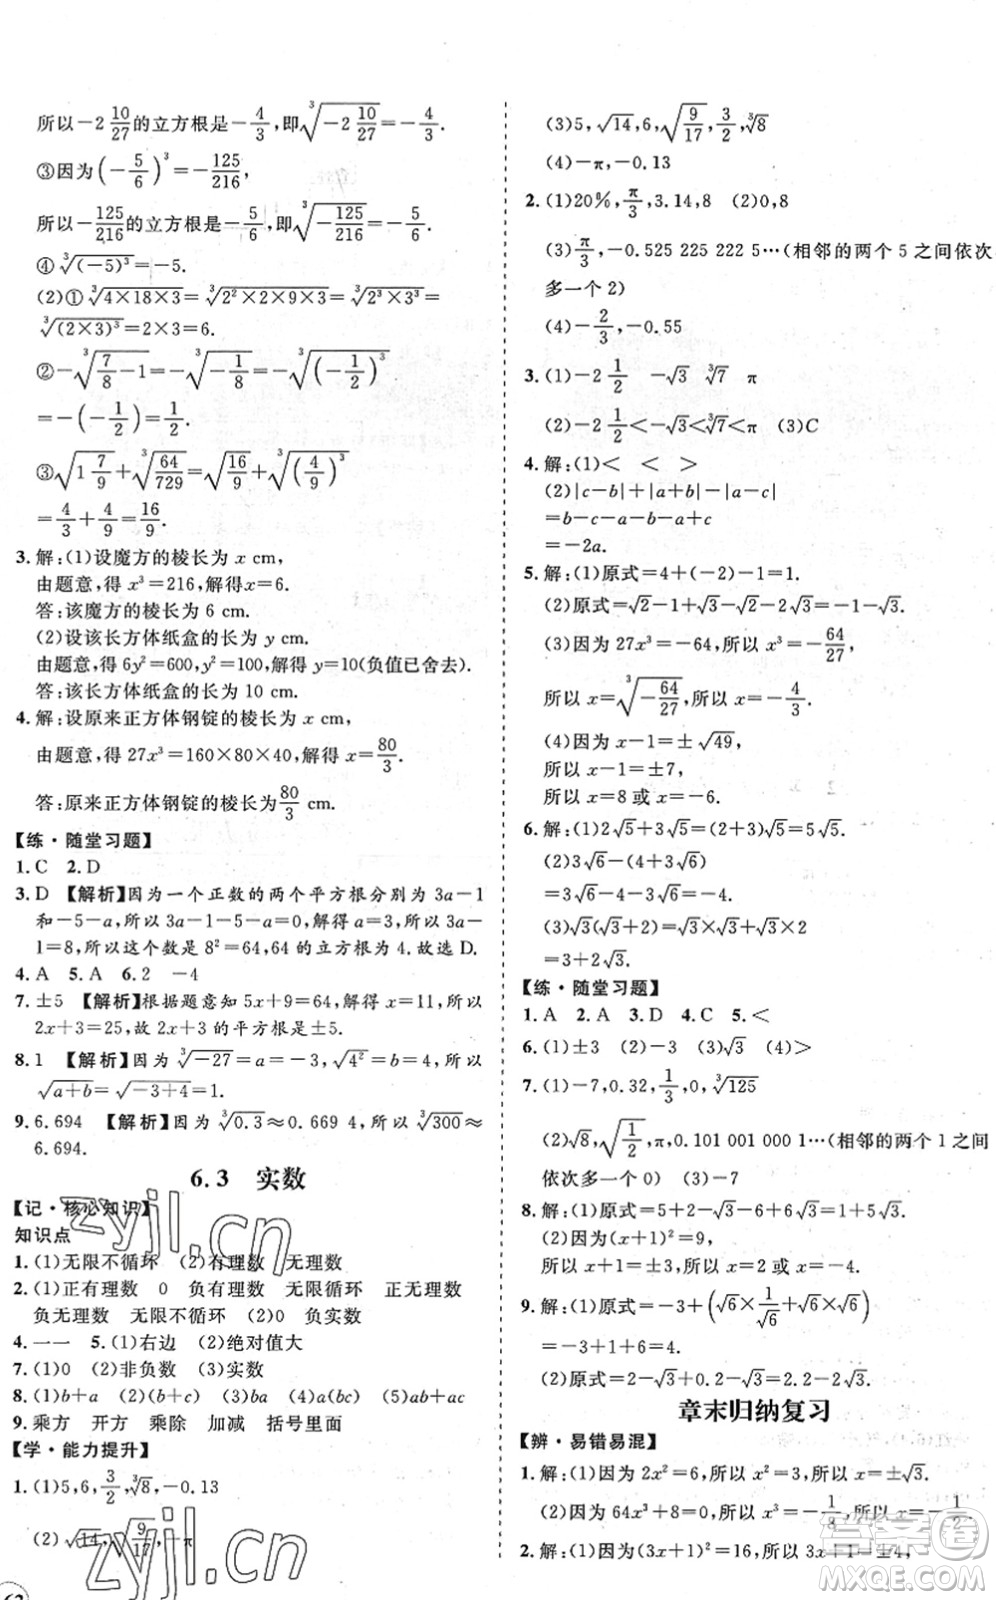 所以-2 10/27的立方根是-4/3,即∛(-2 10/27)=-4/3.
③因为(-5/6)³=-125/216,
所以-125/216的立方根是-5/6,即∛(-125/216)=-5/6.
④∛((-5)³)=-5.
(2)①∛(4×18×3)=∛(2²×2×9×3)=∛(2³×3³)=
∛((2×3)³)=2×3=6.
②-∛(7/8-1)=-∛(-1/8)=-∛((-1/2)³)
=-(-1/2)=1/2.
③√(1 7/9)+∛(64/729)=√(16/9)+∛((4/9)³)
=4/3+4/9=16/9.
3.解:(1)设魔方的棱长为 x cm,
由题意,得 x³=216,解得 x=6.
答:该魔方的棱长为 6 cm.
(2)设该长方体纸盒的长为 y cm,
由题意,得 6y²=600,y²=100,解得 y=10(负值已舍去).
答:该长方体纸盒的长为 10 cm.
4.解:设原来正方体钢锭的棱长为 x cm,
由题意,得 27x³=160×80×40,解得 x=80/3.
答:原来正方体钢锭的棱长为80/3 cm.
【练·随堂习题】
1.C 2.D
3.D 【解析】因为一个正数的两个平方根分别为 3a-1
和-5-a,所以 3a-1-5-a=0,解得 a=3.所以 3a-
1=8,所以这个数是 8²=64,64 的立方根为 4.故选 D.
4.A 5.A 6.2 -4
7.±5 【解析】根据题意知 5x+9=64,解得 x=11,所以
2x+3=25,故 2x+3 的平方根是±5.
8.1 【解析】因为∛-27=a=-3,√4²=b=4,所以
√(a+b)=√(-3+4)=1.
9.6.694 【解析】因为∛0.3≈0.669 4,所以∛300≈
6.694.
6.3 实数
【记·核心知识】
知识点
1.(1)无限不循环 (2)有理数 无理数
2.(1)正有理数 0 负有理数 无限循环 正无理数
负无理数 无限不循环 (2)0 负实数
4.一一 5.(1)右边 (2)绝对值大
7.(1)0 (2)非负数 (3)实数
8.(1)b+a (2)a (3)ba (4)a(bc) (5)ab+ac
9.乘方 开方 乘除 加减 括号里面
【学·能力提升】
1.(1)5,6,3/2,∛8,-0.13
(2)√14,√(9/17),-π
(3)5,√14,6,√(9/17),3/2,∛8
(4)-π,-0.13
2.(1)20%,π/3,3.14,8 (2)0,8
(3)π/3,-0.525 225 222 5…(相邻的两个 5 之间依次
多一个 2)
(4)-2/3,-0.55
3.(1)-2 1/2 -√3 ∛7 π
(2)-2 1/2<-√3<∛7<π (3)C
4.解:(1)< < >
(2)|c-b|+|a+b|-|a-c|
=b-c-a-b-a+c
=-2a.
5.解:(1)原式=4+(-2)-1=1.
(2)原式=√2-1+√3-√2-2√3=-1-√3.
(3)因为 27x³=-64,所以 x³=-64/27,
所以 x=∛(-64/27),所以 x=-4/3.
(4)因为 x-1=±√49,
所以 x-1=±7,
所以 x=8 或 x=-6.
6.解:(1)2√5+3√5=(2+3)√5=5√5.
(2)3√6-(4+√6)
=3√6-4-√6
=2√6-4.
(3)√3(√3+2)=√3×√3+√3×2
=3+2√3.
【练·随堂习题】
1.A 2.A 3.D 4.C 5.<
6.(1)±3 (2)-2 (3)√3 (4)>
7.(1)-7,0.32,1/3,0,∛125
(2)√8,√(1/2),π,0.101 001 000 1…(相邻的两个 1 之间
依次多一个 0) (3)-7
8.解:(1)原式=5+2-√3-6+2√3=1+√3.
(2)因为(x+1)²=9,
所以 x+1=±3,所以 x=2 或 x=-4.
9.解:(1)原式=-3+(√6×1/√6+√6×√6)=
-3+1+6=4.
(2)原式=√3-√3+2+0.2=2+0.2=2.2.
章末归纳复习
【辨·易错易混】
1.解:(1)因为 2x²=6,所以 x²=3,所以 x=±√3.
(2)因为 64x³+8=0,所以 x³=-1/8,所以 x=-1/2.
2.解:(1)因为(3x+1)²=16,所以 3x+1=±4,
zyjl.cn
zyjl.cn
答案圈
MXQE.COM